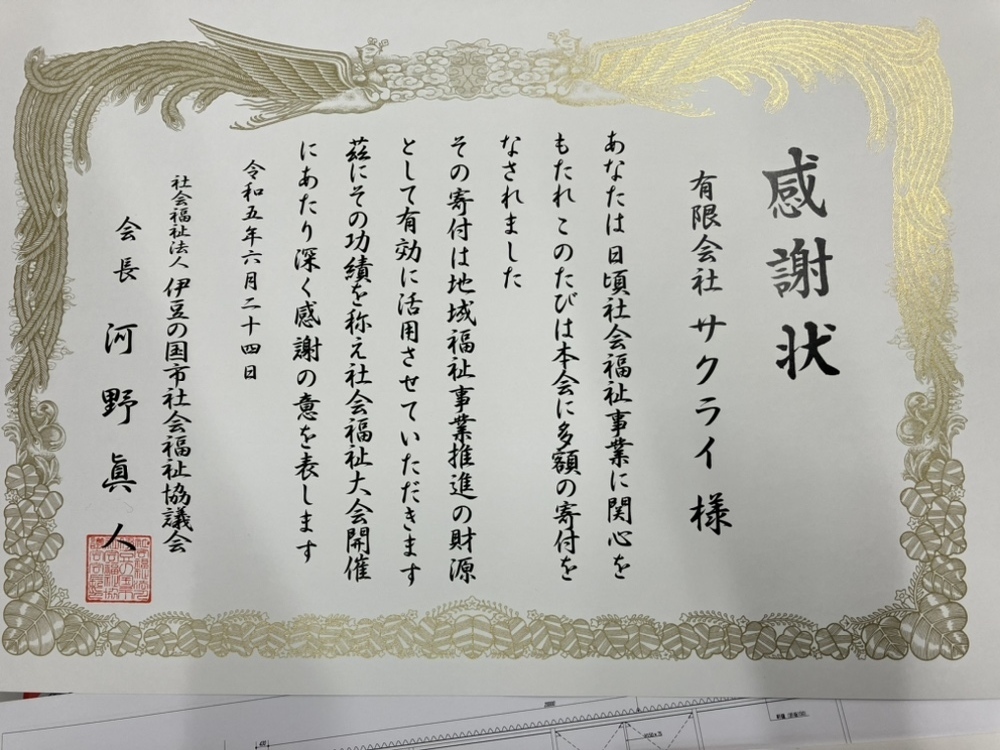 感謝状
有限会社 サクライ 様
あなたは日頃社会福祉事業に関心を
もたれ このたびは本会に多額の寄付を
なされました
その寄付は地域福祉事業推進の財源
として有効に活用させていただきます
茲にその功績を称え社会福祉大会開催
にあたり深く感謝の意を表します
令和五年六月二十四日
社会福祉法人 伊豆の国市社会福祉協議会
会長 河野眞人